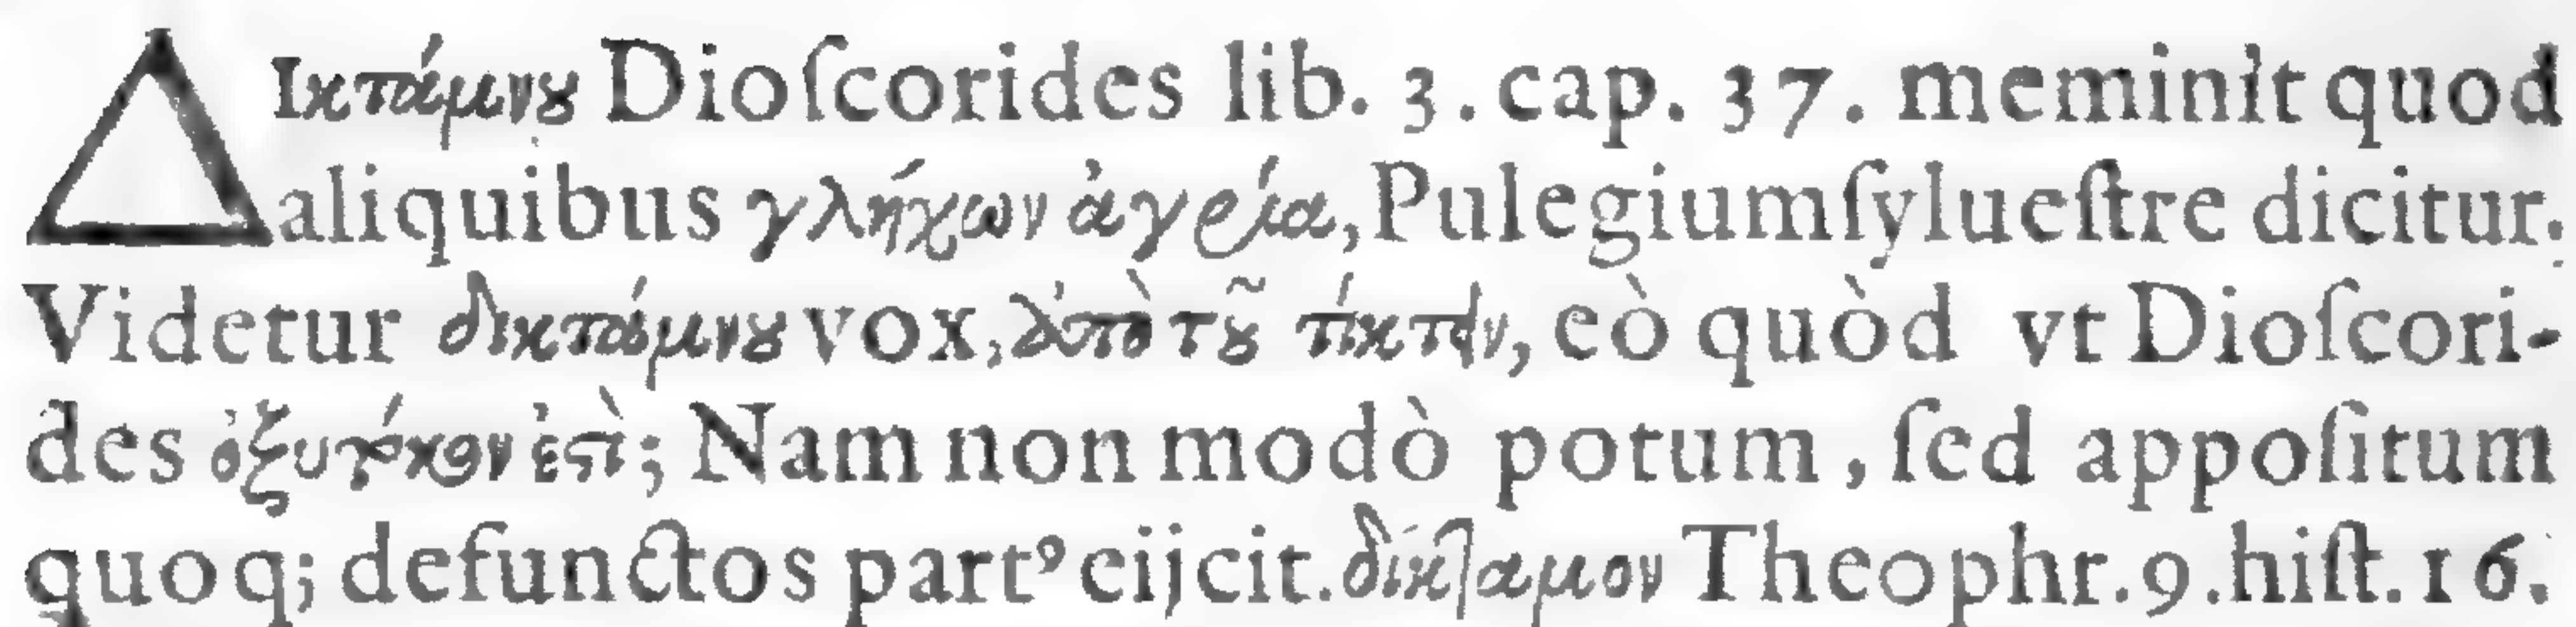 ΔΙκτάμνου Dioſcorides lib. 3. cap. 37. meminit quod
aliquibus γλήχων ἀγρία, Pulegium ſylueſtre dicitur.
Videtur δικτάμνου vox, ἀπὸ τοῦ τίκτειν, eò quòd vt Dioſcori-
des ὀξυτόκον ἐστὶ; Nam non modò potum, ſed appoſitum
quoq; defunctos partꝰ eijcit. δίκταμον Theophr. 9. hiſt. 16.